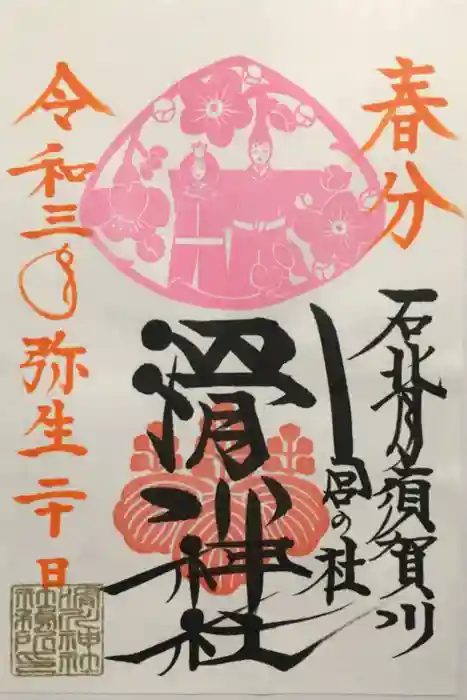 春分
石背須賀川
宮の社
滑川神社
令和三
弥生二十日
滑川神社
社務所印